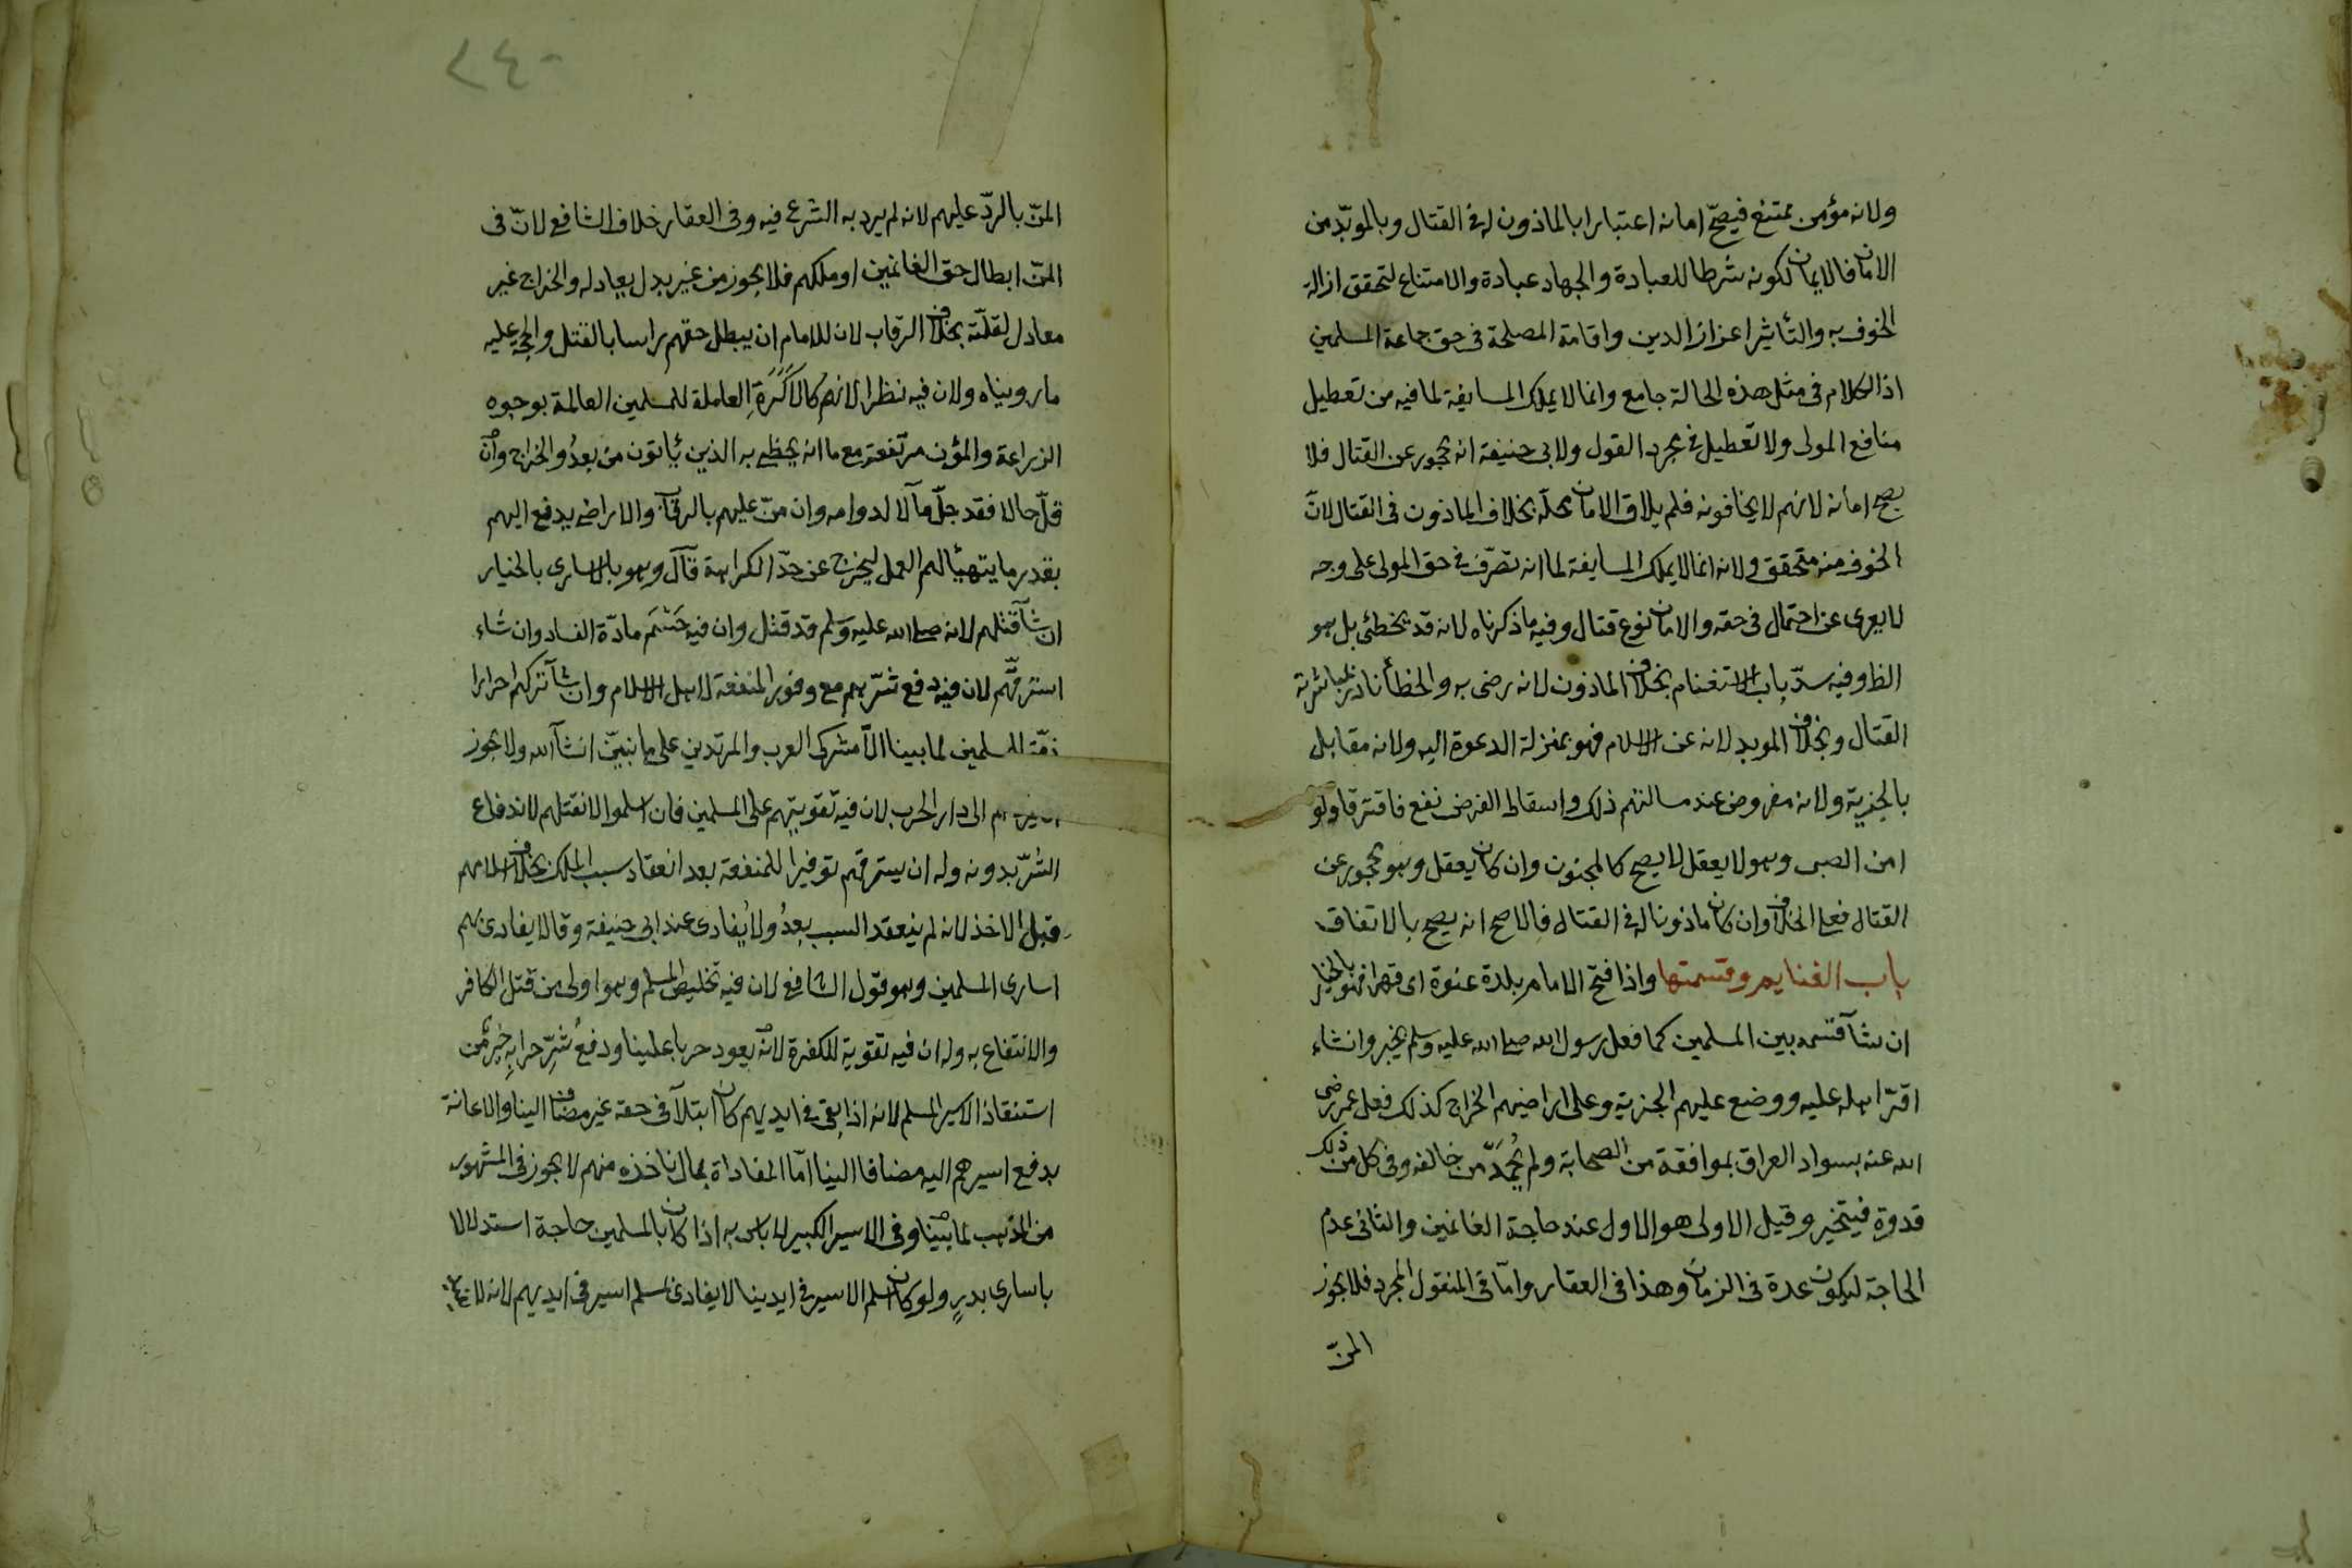 ولانه مؤمن ممتنع فيصحّ امانه اعتبارا بالماذون له فى القتال وبالموبّد من
الامان فالايمان لكونه شرطا للعبادة والجهاد عبادة والامتناع لتحقق ازالة
الخوف به والتأثير اعزاز الدين واقامة المصلحة فى حق جماعة المسلمين
اذ الكلام فى مثل هذه الحالة جامع وانما لا يملك المسايفة لما فيه من تعطيل
منافع المولى ولا تعطيل فى مجرد القول ولابى حنيفة انه محجور عن القتال فلا
يصح امانه لانهم لا يخافونه فلم يلاق الامان محلّه بخلاف الماذون فى القتال لانّ
الخوف منه متحقق ولانه انما لا يملك المسايفة لما انه تصرّف فى حق المولى على وجه
لا يعرى عن احتمال فى حقه والامان نوع قتال وفيه ما ذكرناه لانه قد يخطئ بل هو
الظ وفيه سدّ باب الاستغنام بخلاف الماذون لانه رضى به والخطأ نادر لمباشرته
القتال وبخلاف الموبد لانه عن الاسلام فهو بمنزلة الدعوة اليه ولانه مقابل
بالجزية ولانه مفروض عند مسالتهم ذلك واسقاط الفرض نفع فافترقا ولو
امن الصبى وهو لا يعقل لا يصح كالمجنون وان كان يعقل وهو محجور عن
القتال فعلى الخلاف وان كان ماذونا له فى القتال فالاصح انه يصح بالاتفاق
باب الغنايم وقسمتها واذا فتح الامام بلدة عنوة اى قهرا فهو بالخيار
ان شآ قسمه بين المسلمين كما فعل رسول الله صلى الله عليه وسلم بخيبر وان شاء
اقرّ اهله عليه ووضع عليهم الجزية وعلى اراضيهم الخراج كذلك فعل عمر رضى
الله عنه بسواد العراق بموافقة من الصحابة ولم يُحمَد من خالفه وفى كل من ذلك
قدوة فيتخير وقيل الاولى هو الاول عند حاجة الغانمين والثانى عدم
الحاجة ليكون عدة فى الزمان وهذا فى العقار وامّا فى المنقول المجرد فلا يجوز
المنّ
٢٤٠
المنّ بالردّ عليهم لانه لم يرد به الشرع فيه وفى العقار خلاف الشافعى لانّ فى
المنّ ابطال حق الغانمين او ملكهم فلا يجوز من غير بدل يعادله والخراج غير
معادل لقلّته بخلاف الرقاب لان للامام ان يبطل حقهم راسا بالقتل والحجة عليه
ما رويناه ولان فيه نظرا لانهم كالاَكَرَةِ العاملة للمسلمين العالمة بوجوه
الزراعة والمؤن مرتفعة مع ما انه يحظى به الذين يأتون من بعدُ والخراج وان
قلّ حالا فقد جلّ مآلا لدوامه وان منّ عليهم بالرقاب والاراضى يدفع اليهم
بقدر ما يتهيّأ لهم العمل ليخرج عن حدّ الكراهة قال وهو بالاسارى بالخيار
ان شآ قتلهم لانه صلى الله عليه وسلم قد قتل وان فيه حَسْمَ مادّة الفساد وان شاء
استرقّهم لان فيه دفع شرّهم مع وفور المنفعة لاهل الاسلام وان شآ تركهم احرارا
ذمّة للمسلمين لما بينا الاّ مشركى العرب والمرتدين على ما نبيّن ان شآ الله ولا يجوز
الى دار الحرب لان فيه تقويتهم على المسلمين فان اسلموا لا نقتلهم لاندفاع
الشرّ بدونه وله ان يسترقهم توفيرا للمنفعة بعد انعقاد سبب الملك بخلاف اسلامهم
قبل الاخذ لانه لم ينعقد السبب بعدُ ولا يُفادى عند ابى حنيفة وقالا يفادى بهم
اسارى المسلمين وهو قول الشافعى لان فيه تخليص المسلم وهو اولى من قتل الكافر
والانتفاع به وله ان فيه تقوية للكفرة لانه يعود حربا علينا ودفعُ شرِّ حرابِهِ خير من
استنقاذ الاسير المسلم لانه اذا بقى فى ايديهم كان ابتلآ فى حقه غير مضاف الينا والاعانة
بدفع اسيرهم اليه مضافا الينا امّا المفاداة بمال ناخذه منهم لا يجوز فى المشهور
من المذهب لما بيّنا وفى السير الكبير لا باس به اذا كان بالمسلمين حاجة استدلالا
باسارى بدرٍ ولو كان اسلم الاسير فى ايدينا لا يفادى بمسلم اسير فى ايديهم لانه لا